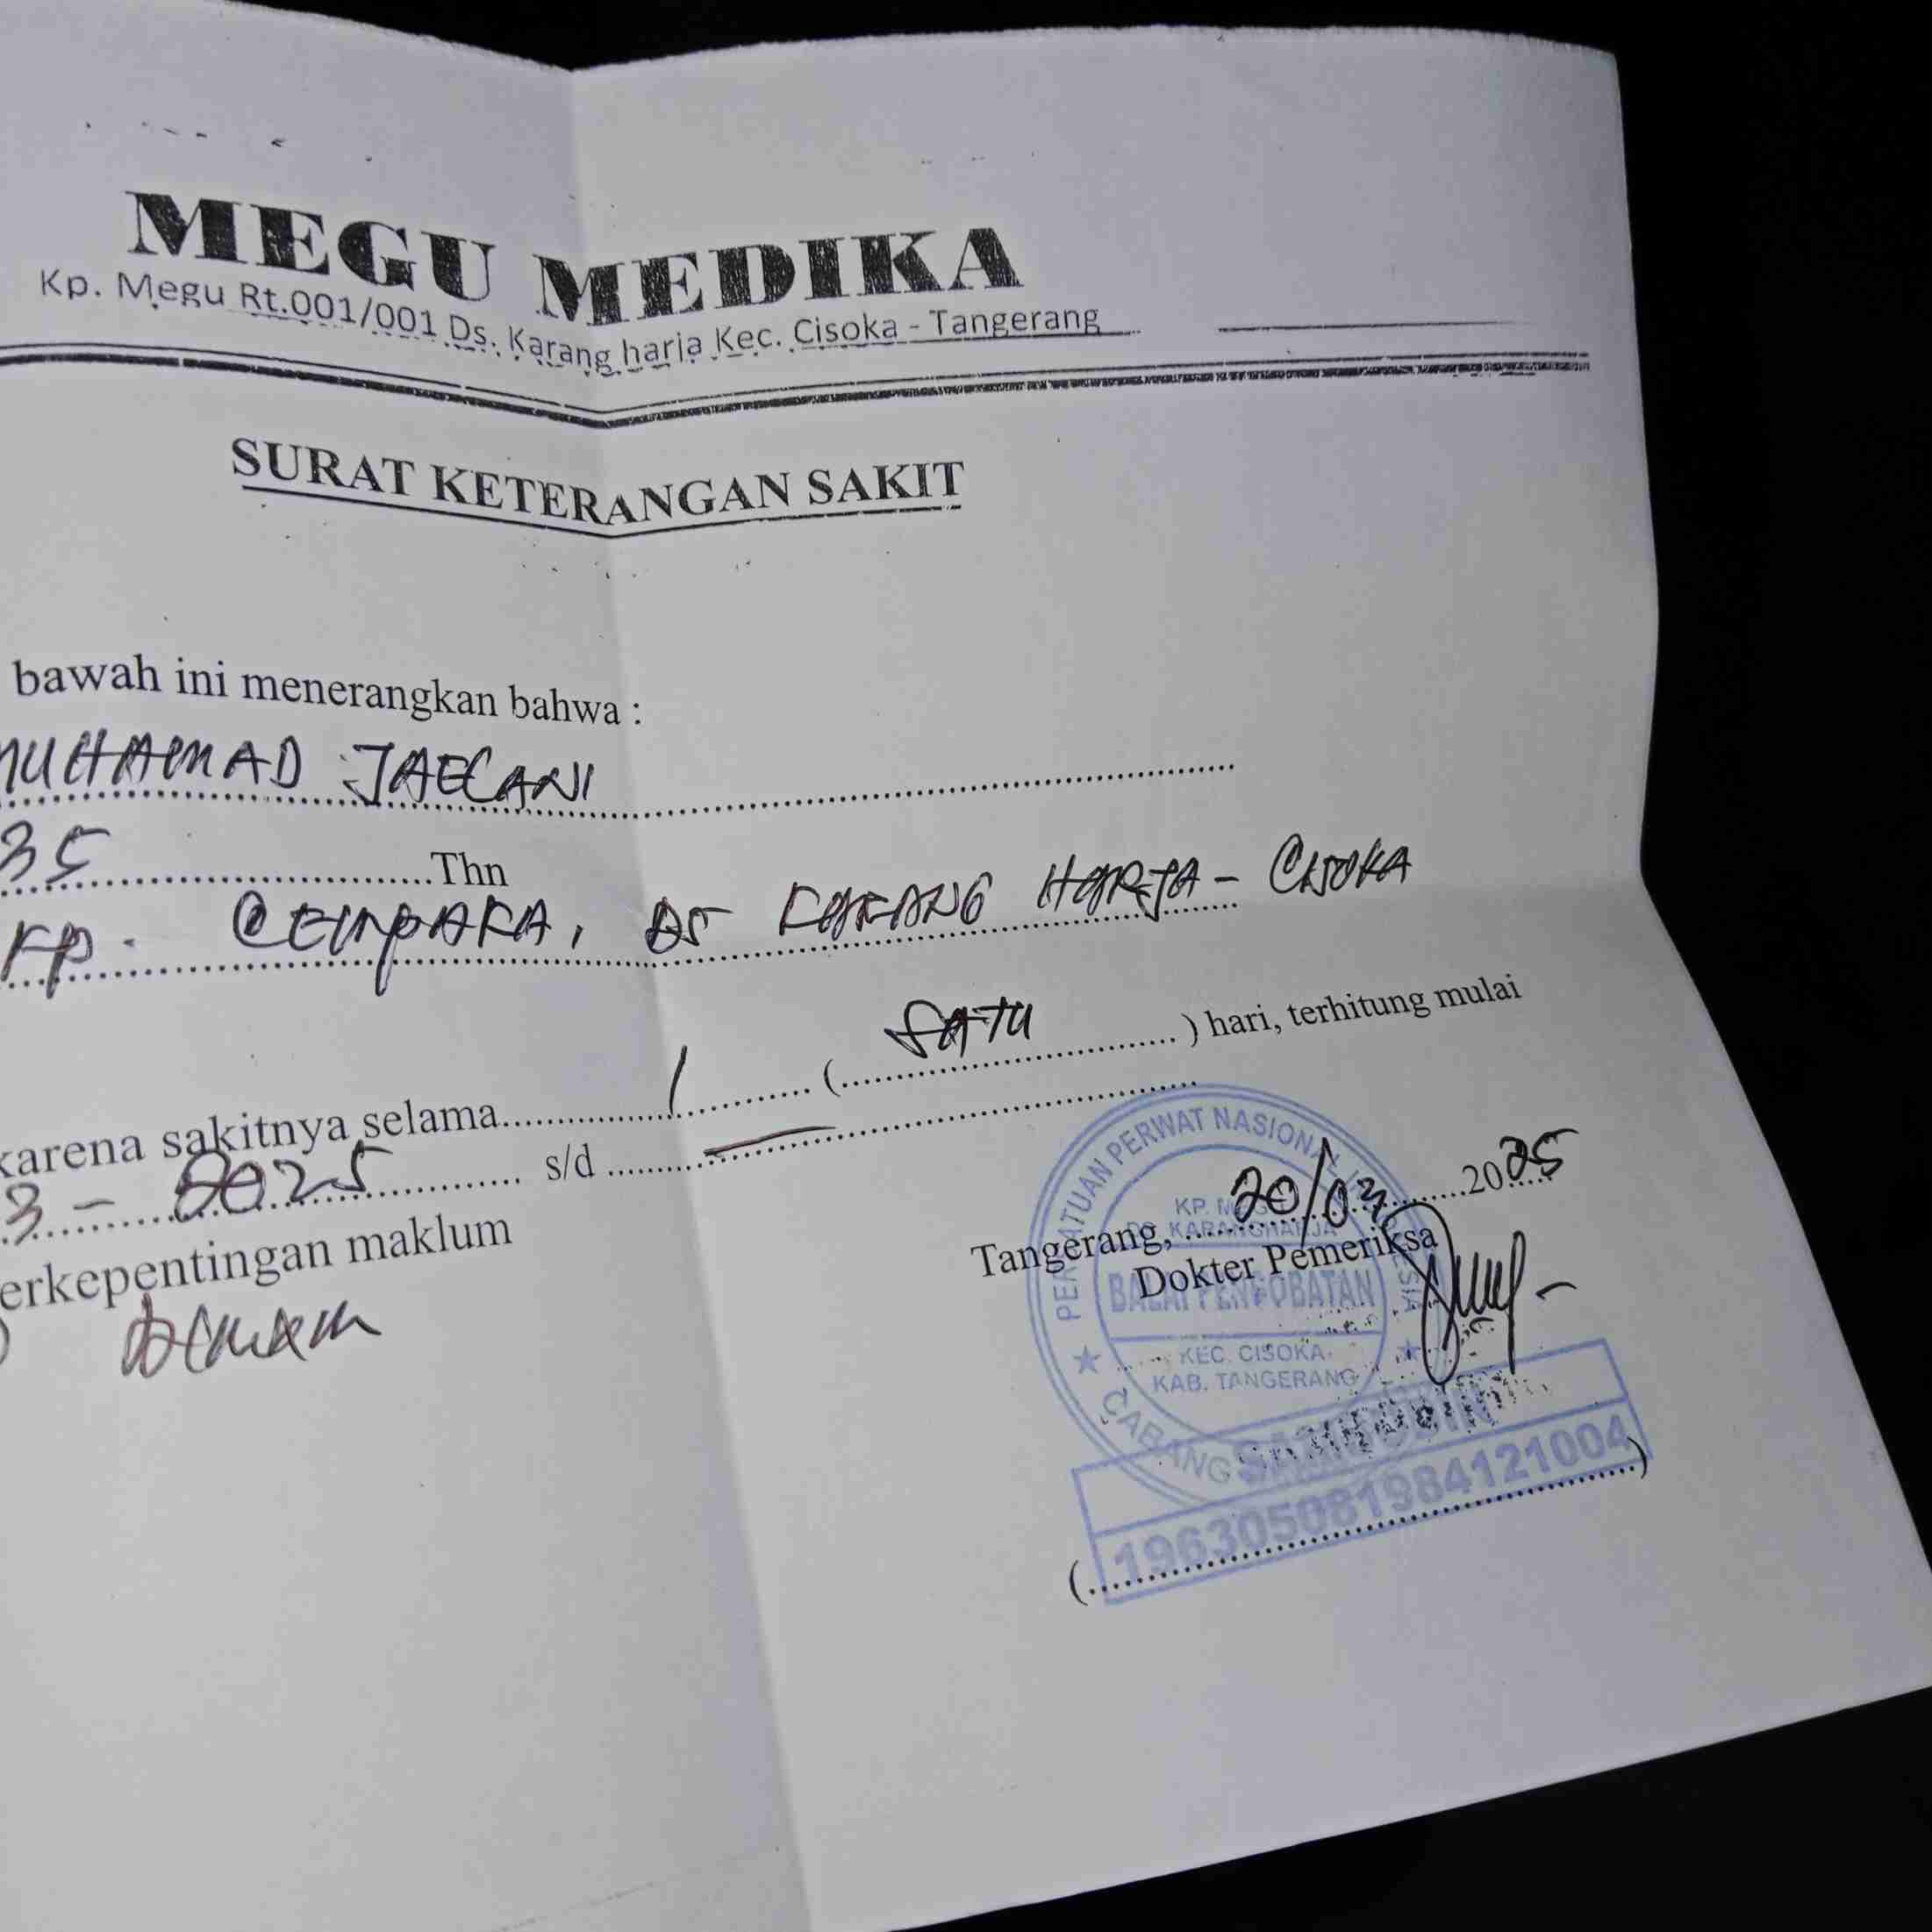 MEGU MEDIKA
Kp. Megu Rt.001/001 Ds. Karang harja Kec. Cisoka - Tangerang
SURAT KETERANGAN SAKIT
bawah ini menerangkan bahwa :
MUHAMAD JAELANI
35 Thn
KP. CEMPAKA, DS KARANG HARJA - CISOKA
karena sakitnya selama 1 ( SATU ) hari, terhitung mulai
3 - 2025 s/d —
erkepentingan maklum
demam
Tangerang, 20/03 2025
Dokter Pemeriksa
PERSATUAN PERWAT NASIONAL
KP. 
DS. KARANGHARJA
BALAI PENGOBATAN
KEC. CISOKA
KAB. TANGERANG
CABANG
196305081984121004